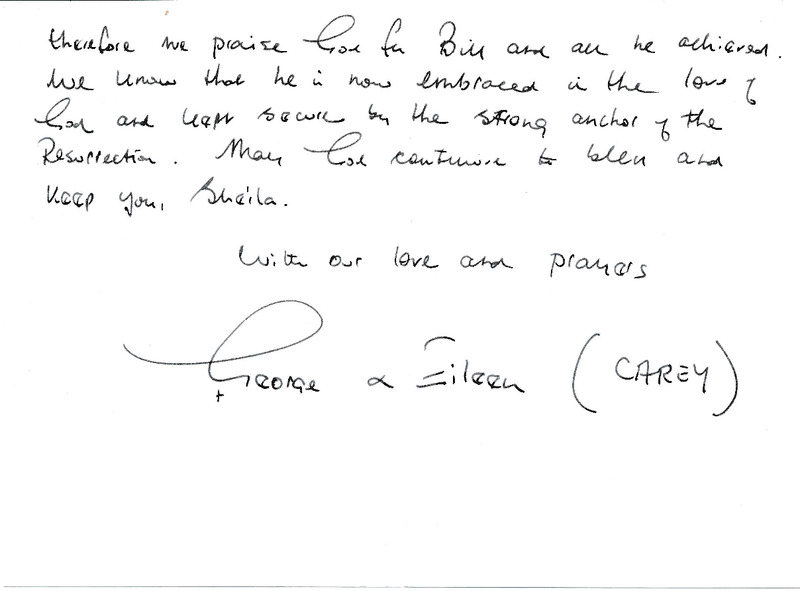 therefore we praise God for Bill and all he achieved.
We know that he is now embraced in the love of
God and kept secure by the strong anchor of the
Resurrection. May God continue to bless and
keep you, Sheila.
With our love and prayers
+George & Eileen (CAREY)